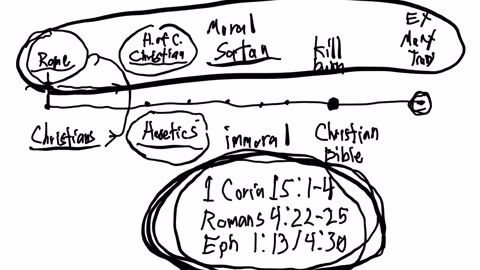 Rome
H. of C.
Christian
Moral
kill
him
EX
Christians
Heretics
immoral
Christian
Bible
1 Corin 15:1-4
Romans 4:22-25
Eph 1:13/4:30